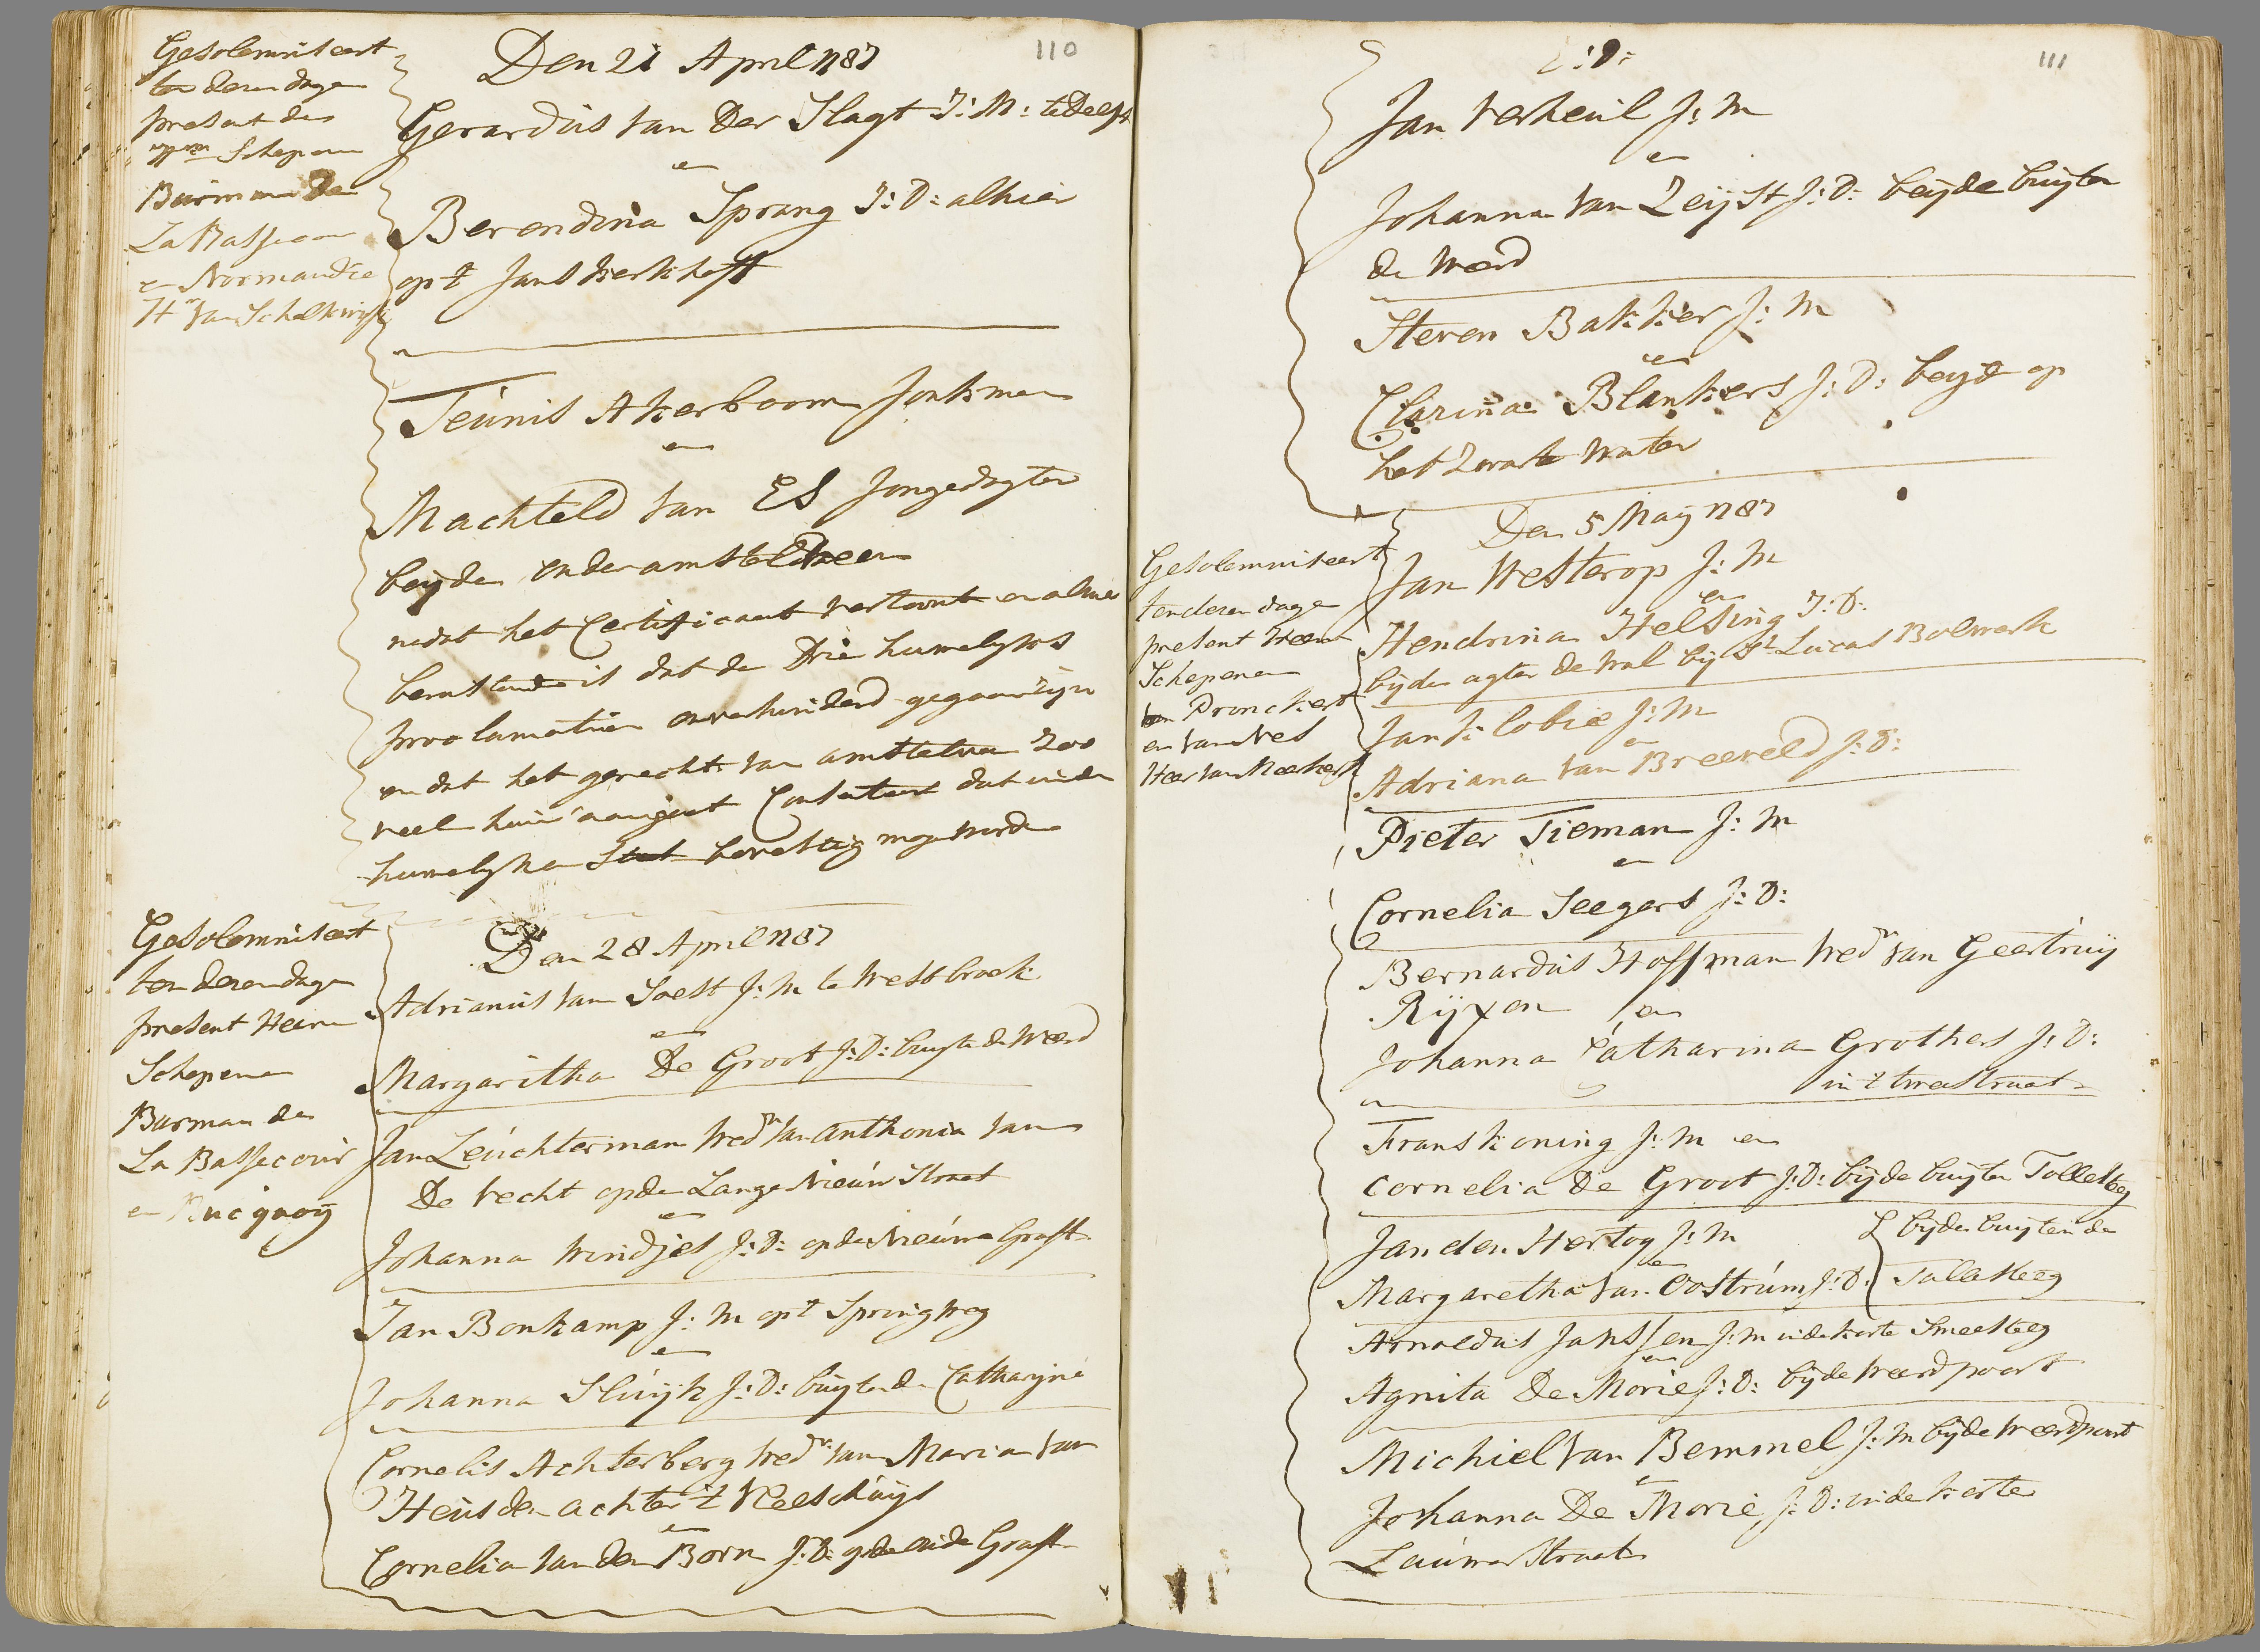 110
Gesolemniseert
ten deren dage
present de
Schepenen
Burman de
La Bassecour
en Normandie
Hr van Schalkwijk
Den 21 April 1787
Gerardus van Der Slagt J: M: te Delft
en
Berendina Sprang J: D: alhier
op t Jans kerkhoff
Teunis Akerboom Jonkman
en
Machteld van ES Jongedogter
beyde onder amstelveen
nadat het Certificaat vertoont en alhier
is dat de Drie huwelykse
proclamatien onverhinderd gegaan zyn
en dat het gerecht van amstelveen zoo
veel hun aangaat Consenteert dat in den
huwelyken Staat bevestig mogen worden
Gesolemniseert
ten deren dage
present Heeren
Schepenen
Burman de
La Bassecour
en
Den 28 April 1787
Adrianus van Soest J: M te Westbroek
en
Margaritha De Groot J: D: buyte de Weerd
Jan Leuchterman Wedr van Anthonia van
De Vecht op de Lange Nieuw Straat
en
Johanna Windjes J: D: op de Nieuwe Graft
Jan Bonkamp J: M op t Springweg
en
Johanna Sluyk J: D: buyten de Catharyne
Cornelis Achterberg Wedr van Maria van
Heusden achter 't Vleeschuys
en
Cornelia van den Born J: D: op de oude Graft
111
Jan Verheul J: M
en
Johanna van Zeyst J: D: beyde buyten
de Weerd
Steven Bakker J: M
en
Clarina Blankers J: D: beyde op
het Zwarte Water
Gesolemniseert
ten deren dage
present Heeren
Schepenen
Pronckert
en van Nes
Heer van Meerkerk
Den 5 May 1787
Jan Westerop J: M
en
Hendrina Helsing J: D:
byde agter de wal by St Lucas Bolwerk
Jan Klobie J: M
en
Adriana van Breeveld J: D:
Pieter Tieman J: M
en
Cornelia Seegers J: D:
Bernardus Hoffman Wedr van Geertruy
Ryxen en
Johanna Catharina Grothers J: D:
in 't tweestraat
Frans Koning J: M en
Cornelia De Groot J: D: byde buyten Tollesteeg
Jan den Hertog J: M
en
Margaretha van Oostrum J: D:
byde buyten de
Tollesteeg
Arnoldus Janssen J: M in de korte Smeesteeg
en
Agnita De Morie J: D: by de Weerdpoort
Michiel van Bemmel J: M by de Weerdpoort
en
Johanna De Morie J: D: in de korte
Lauwerstraat